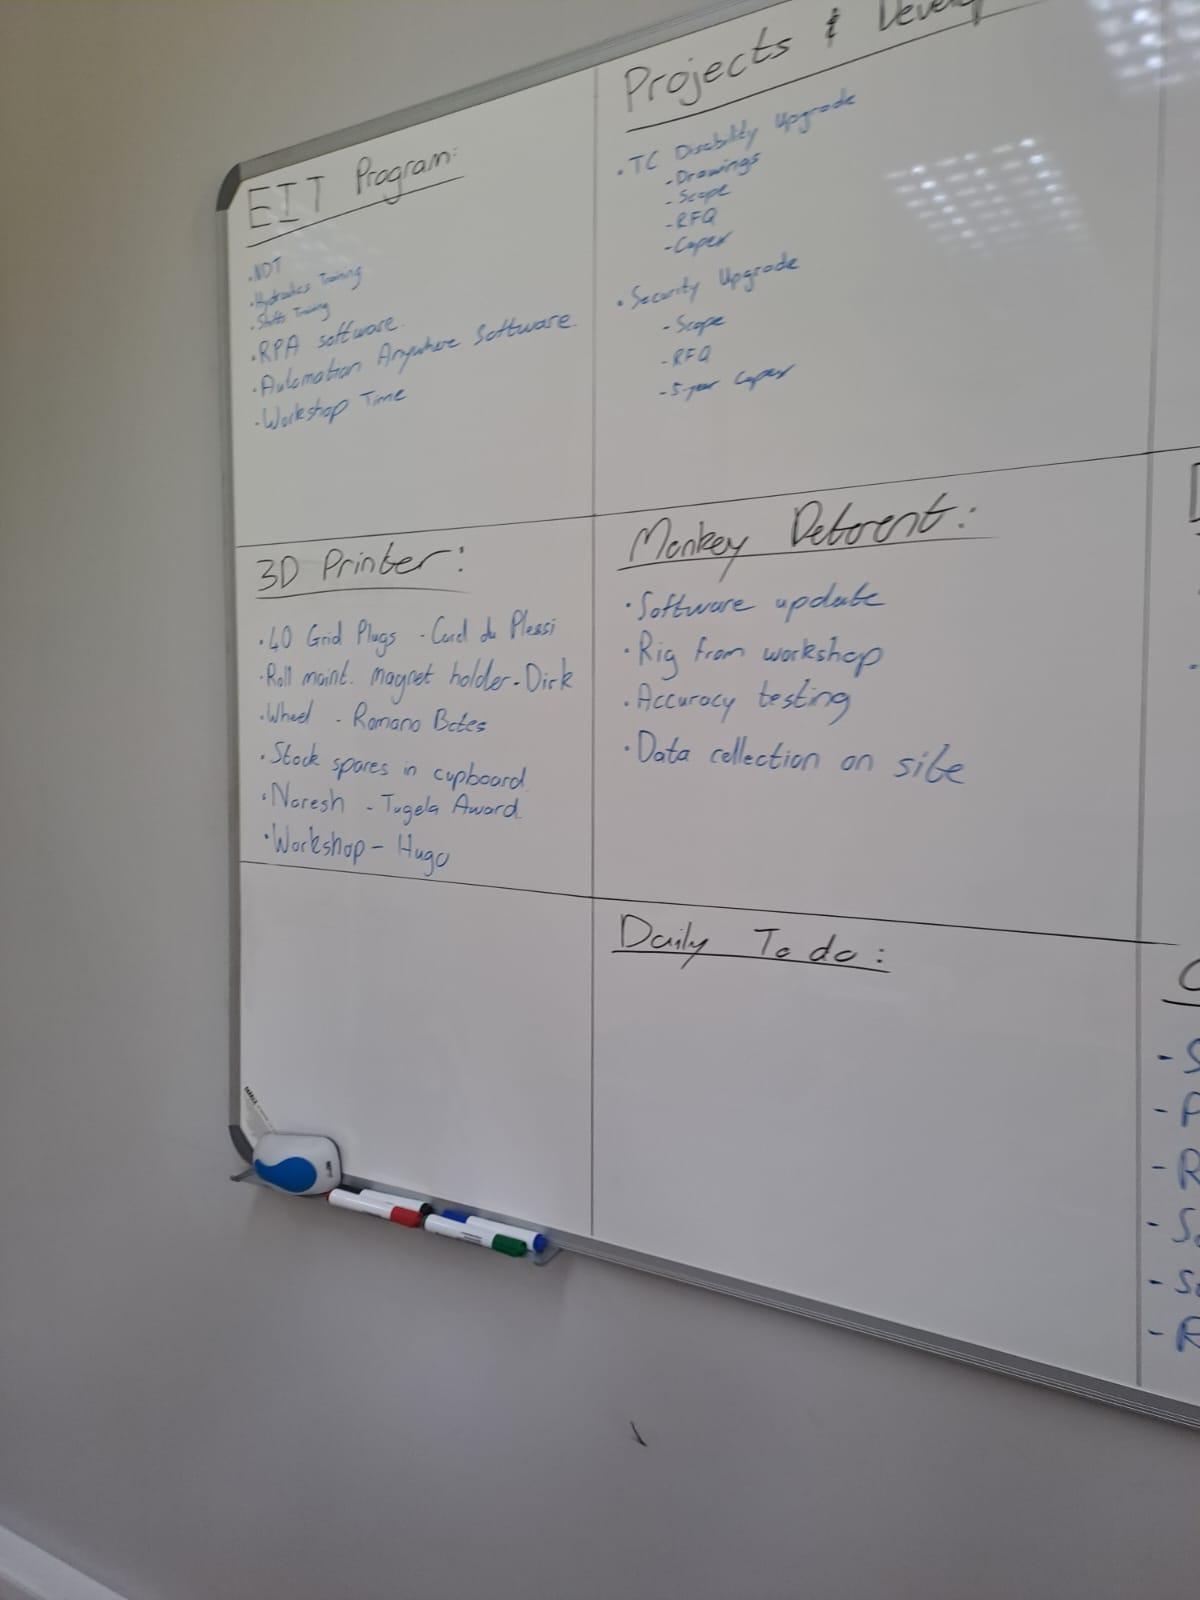 EIT Program:
·NDT
·Hydraulics Training
·Shifts Training
·RPA software.
·Automation Anywhere Software.
·Workshop Time
Projects & Develop
·TC Disability Upgrade
-Drawings
-Scope
-RFQ
-Capex
·Security Upgrade
-Scope
-RFQ
-5-year Capex
3D Printer:
·40 Grid Plugs - Carel du Plessi
·Roll maint. magnet holder-Dirk
·Wheel - Romano Bates
·Stock spares in cupboard.
·Naresh - Tugela Award.
·Workshop - Hugo
Monkey Deterent:
·Software update
·Rig from workshop
·Accuracy testing
·Data collection on site
Daily To do:
- S
- P
- R
- So
- So
- R